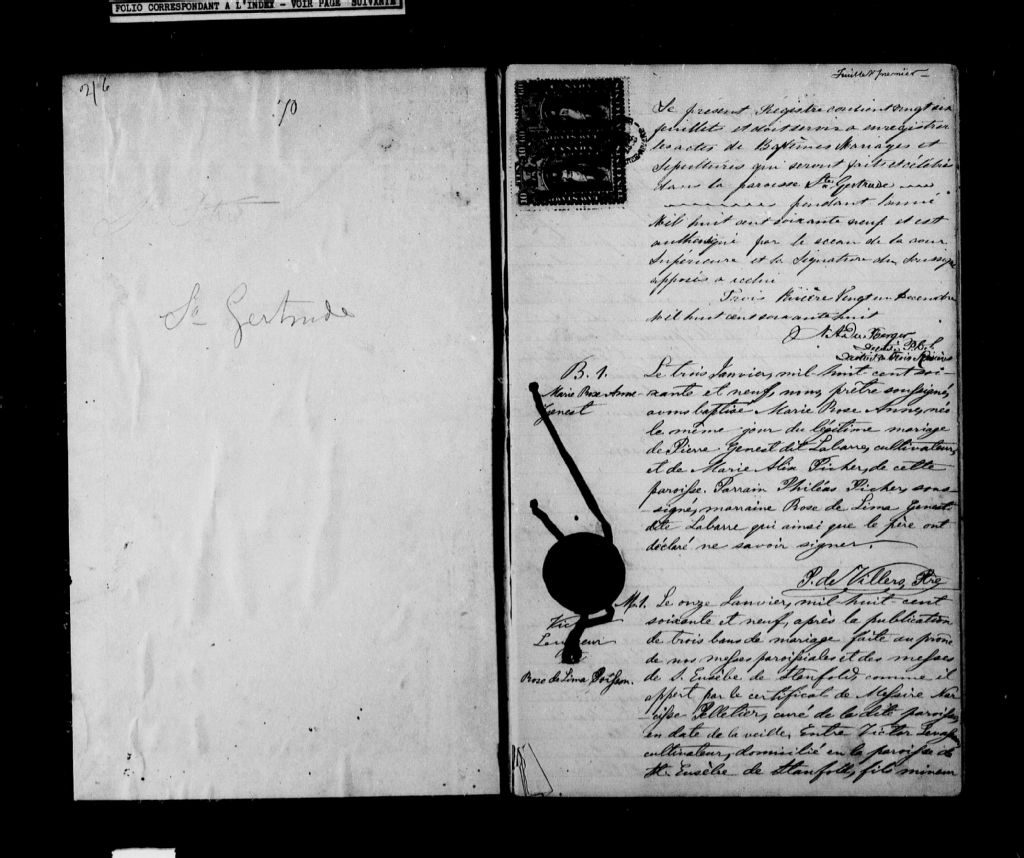 FOLIO CORRESPONDANT A L'INDEX - VOIR PAGE SUIVANTE
246
70
Ste Gertrude
Feuillet premier
Le présent Régistre contient vingt six
feuillets et doit servir a enregistrer
les actes de Baptêmes Mariages et
Sépultures qui seront faits et célébrés
dans la paroisse Ste Gertrude
pendant l'année
Mil huit cent soixante neuf et est
authentiqué par le sceau de la cour
Supérieure et la Signature du Soussigné
apposés a icelui
Trois Rivière Vingt un Décembre
Mil huit cent soixante huit
Député P.C.S.
District de Trois Rivières
B. 1.
Marie Rose Anne
Genest
Le trois Janvier, mil huit-cent soi-
xante et neuf, nous, prêtre soussigné,
avons baptisé Marie Rose Anne, née
le même jour du légitime mariage
de Pierre Genest dit Labarre, cultivateur,
et de Marie Alix Picher, de cette
paroisse. Parrain Philéas Picher, sous-
signé, marraine Rose de Lima Genest
dite Labarre qui ainsi que le père ont
déclaré ne savoir signer.
P. de Villers, Ptre
M. 1.
Vic
Rose de Lima Poisson.
Le onze Janvier, mil huit-cent
soixante et neuf, après la publication
de trois bans de mariage faite au prône
de nos messes paroissiales et des messes
de S. Eusèbe de Stanfold comme il
appert par le certificat de Messire Nar-
cisse Pelletier, curé de la dite paroisse,
en date de la veille, Entre Victor
cultivateur, domicilié en la paroisse de
St. Eusèbe de Stanfold, fils mineur